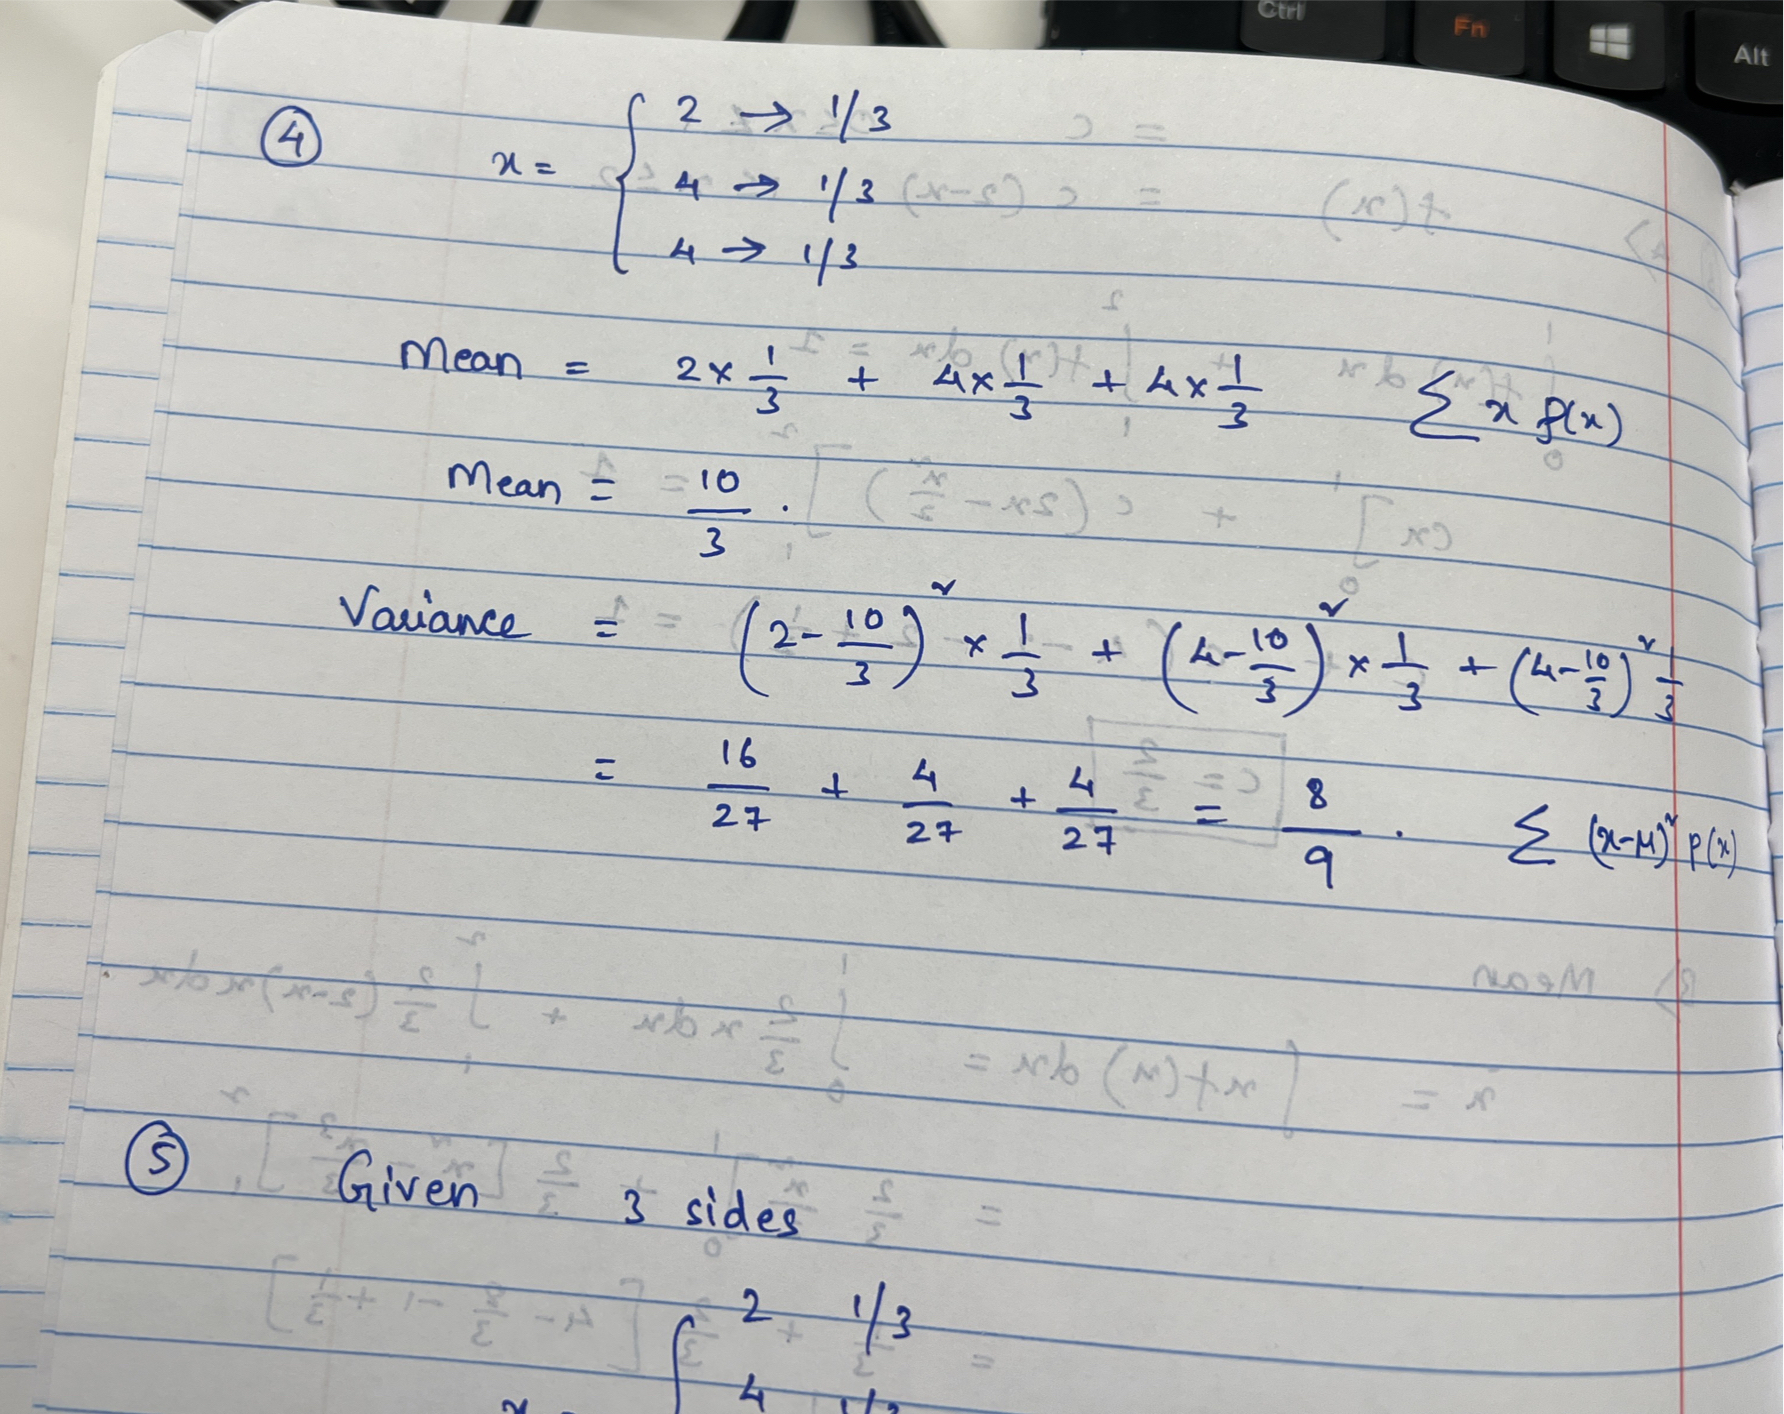 Ctrl Fn Alt
④ x = { 2 → 1/3
4 → 1/3
4 → 1/3
Mean = 2 × 1/3 + 4 × 1/3 + 4 × 1/3 ∑ x f(x)
Mean = 10/3 .
Variance = (2 - 10/3)² × 1/3 + (4 - 10/3)² × 1/3 + (4 - 10/3)² 1/3
= 16/27 + 4/27 + 4/27 = 8/9 . ∑ (x-μ)² p(x)
⑤ Given 3 sides
2 1/3
x = { 4 1/3